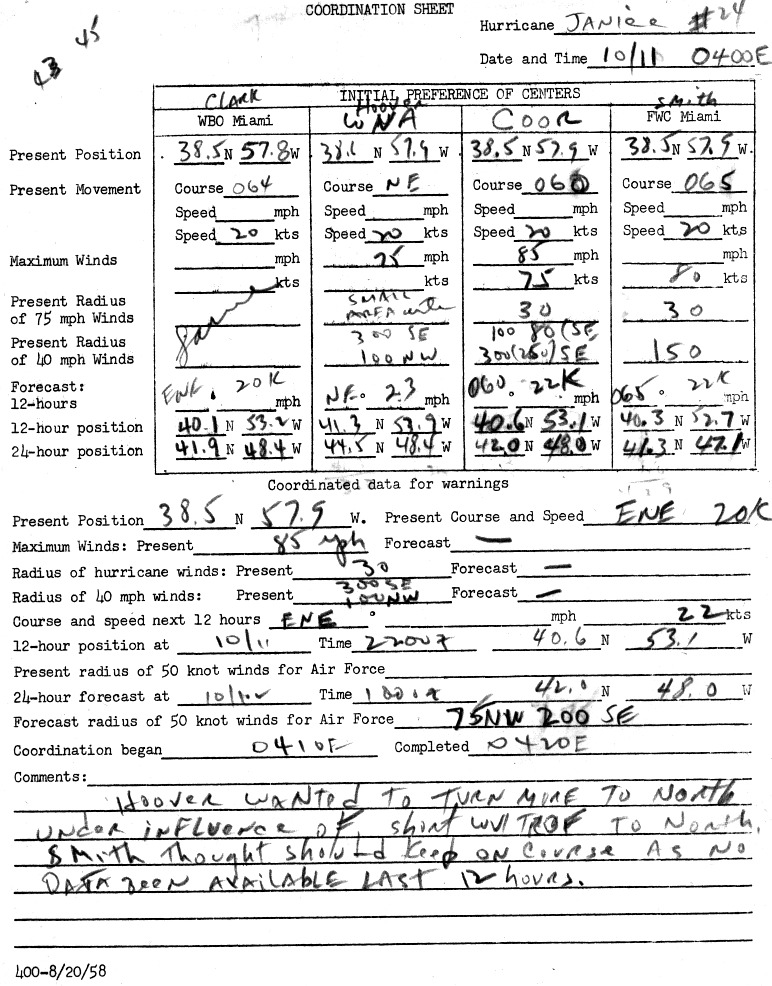 COORDINATION SHEET
Hurricane JANICE #24
Date and Time 10/11 0400E
43 45
INITIAL PREFERENCE OF CENTERS
CLARK Hoover SMITH
WBO Miami WNA COOR FWC Miami
Present Position 38.5 N 57.8 W 38.6 N 57.9 W 38.5 N 57.9 W 38.5 N 57.9 W.
Present Movement Course 064 Course NE Course 060 Course 065
Speed mph Speed mph Speed mph Speed mph
Speed 20 kts Speed 20 kts Speed 20 kts Speed 20 kts
Maximum Winds mph 75 mph 85 mph mph
kts kts 75 kts 80 kts
Present Radius of 75 mph Winds same SMALL AREA 30 30
Present Radius of 40 mph Winds 300 SE 100 NW 100 80 (SE 300 (250) SE 150
Forecast:
12-hours ENE. 20K mph NE. 23 mph 060° 22K mph 065° 22K mph
12-hour position 40.1 N 53.2 W 41.3 N 53.9 W 40.6 N 53.1 W 40.3 N 52.7 W
24-hour position 41.9 N 48.4 W 44.5 N 48.4 W 42.0 N 48.0 W 41.3 N 47.1 W
Coordinated data for warnings
Present Position 38.5 N 57.9 W. Present Course and Speed ENE 20K
Maximum Winds: Present 85 mph Forecast —
Radius of hurricane winds: Present 30 Forecast —
Radius of 40 mph winds: Present 300 SE 100 NW Forecast —
Course and speed next 12 hours ENE ° mph 22 kts
12-hour position at 10/11 Time 2200Z 40.6 N 53.1 W
Present radius of 50 knot winds for Air Force
24-hour forecast at 10/12 Time 42.0 N 48.0 W
Forecast radius of 50 knot winds for Air Force 75NW 200 SE
Coordination began 0410E Completed 0420E
Comments:
HOOVER WANTED TO TURN MORE TO NORTH
UNDER INFLUENCE OF short WV TROF TO NORTH.
SMITH Thought should keep ON COURSE AS NO
DATA BEEN AVAILABLE LAST 12 hours.
400-8/20/58